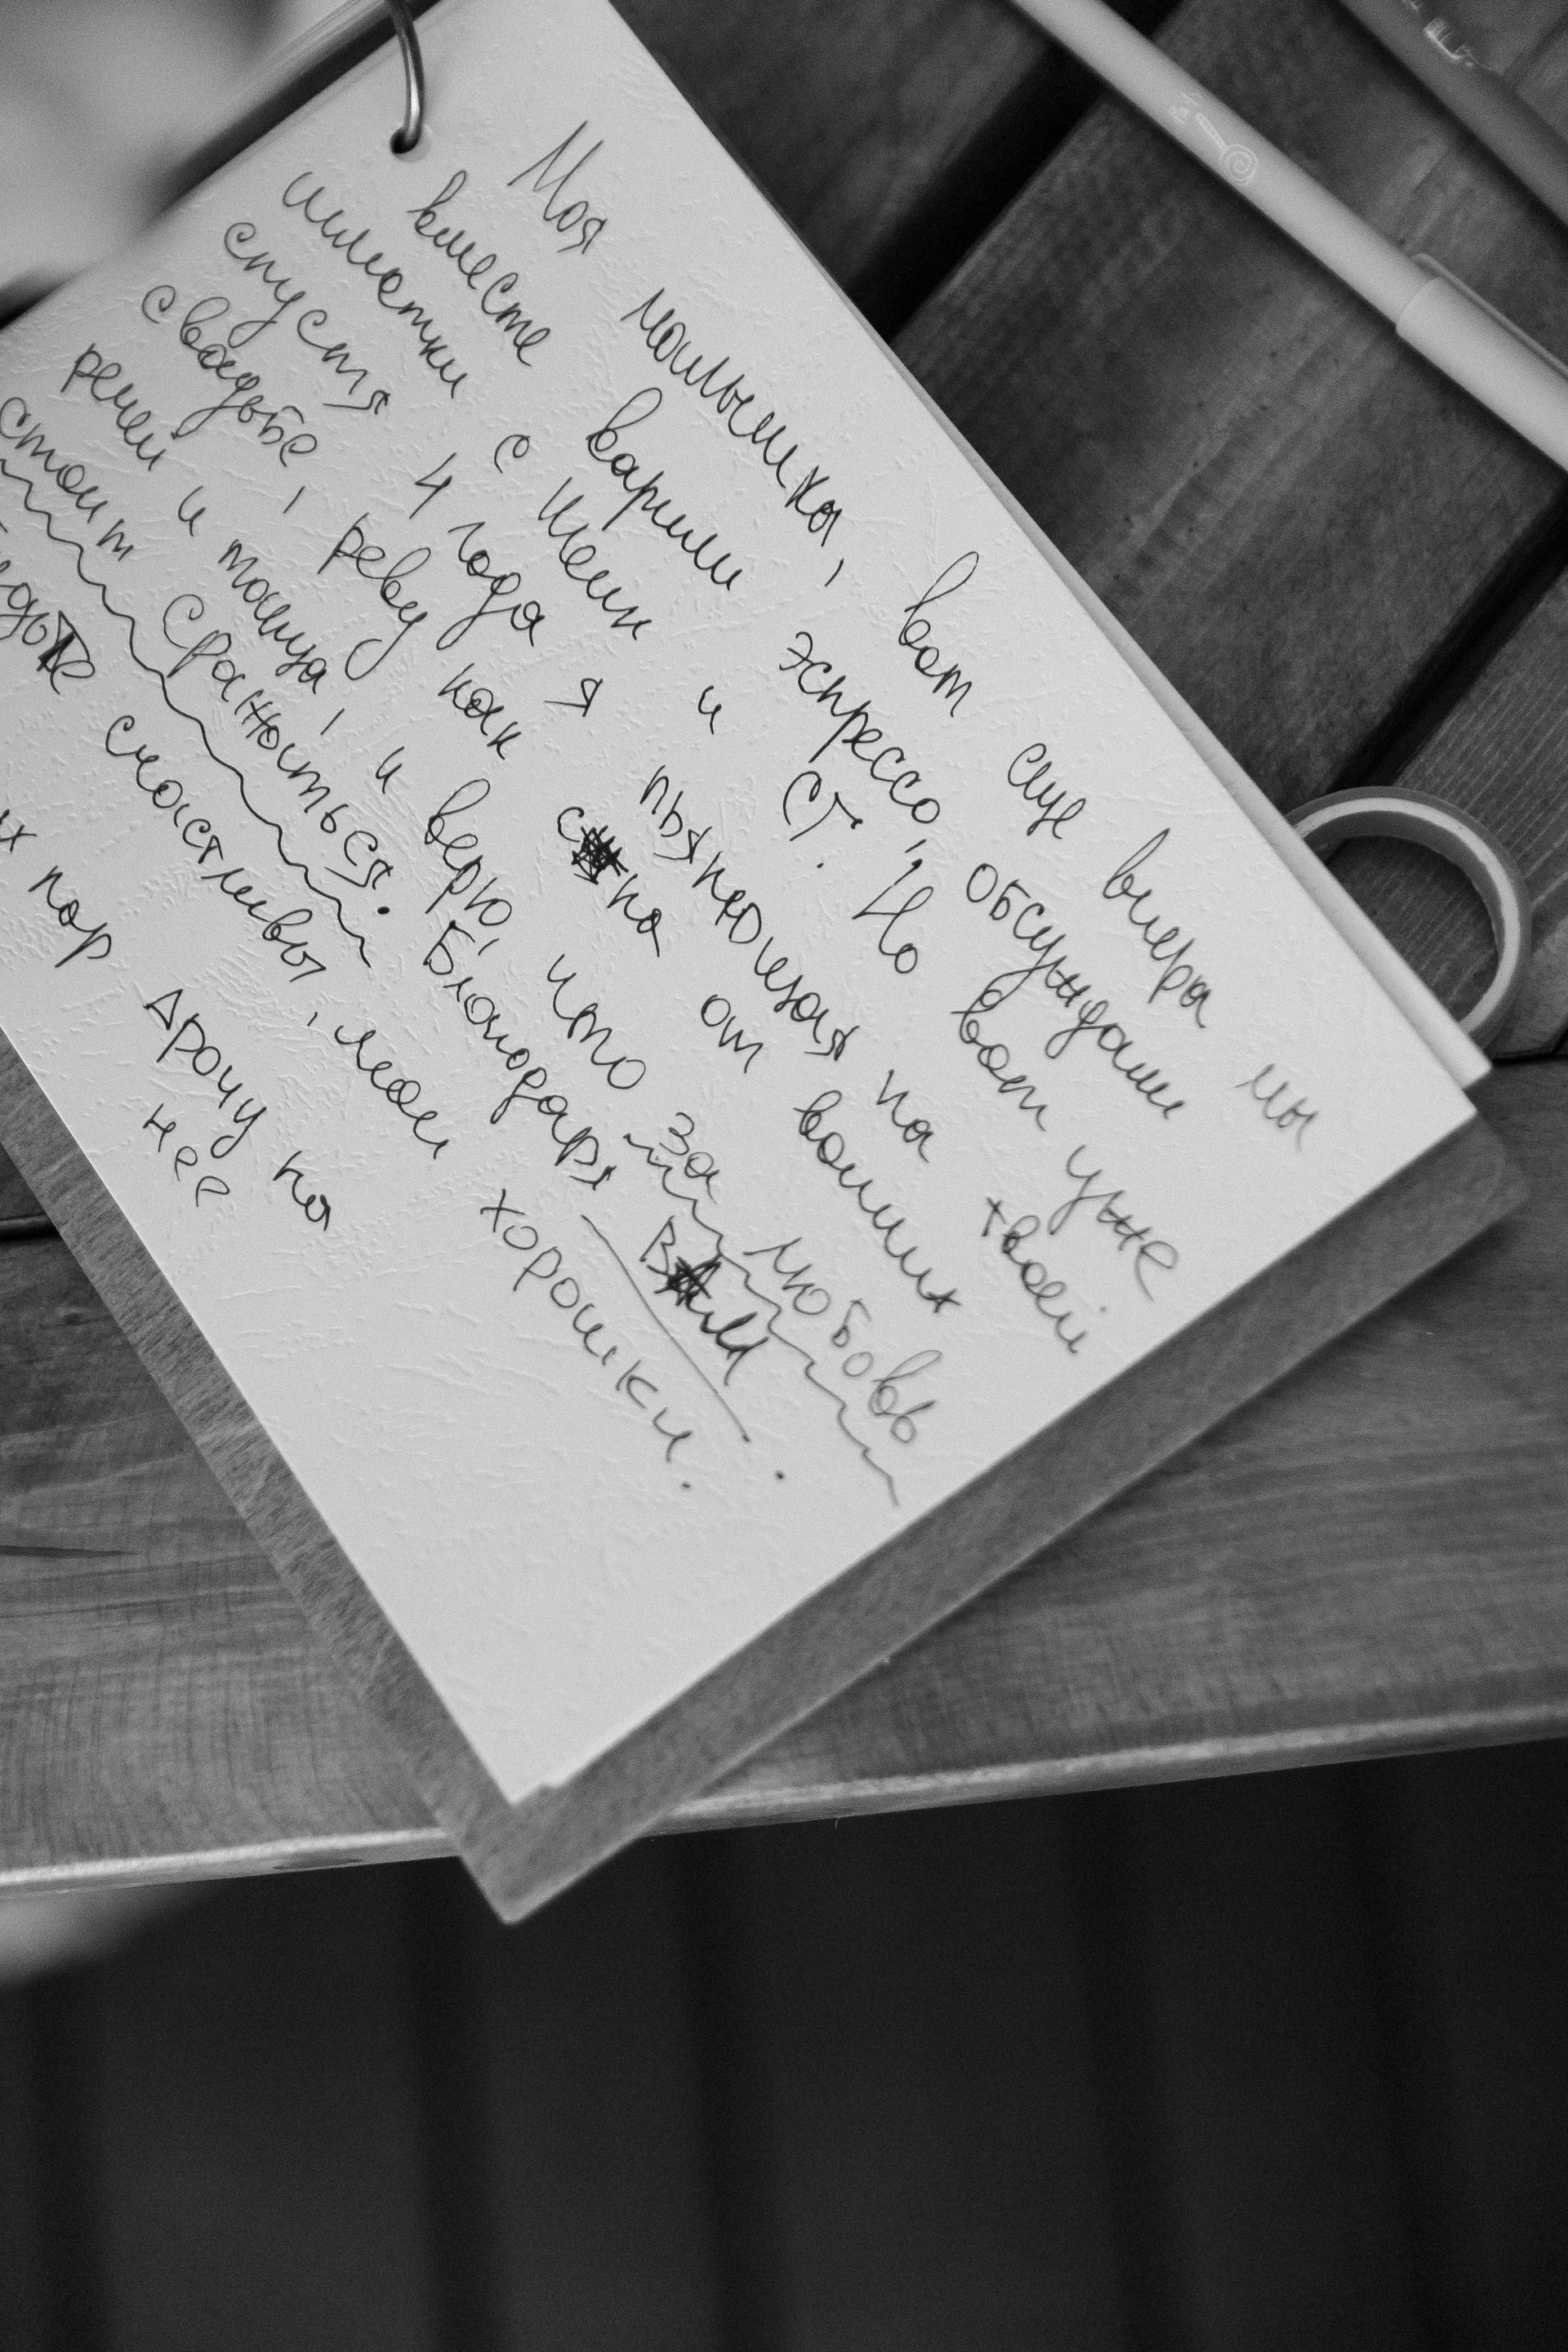 Моя малышка, вот еще вчера мы
вместе варили эспрессо, обсуждали
шмотки с Шеин и СГ. Но вот уже
спустя 4 года я пьянющая на твоей
свадьбе, реву как с на от ваших
речей и танца, и верю, что за любовь
стоит сражаться. Благодаря Вам.
счастливы, мои хорошки.
х пор дрочу на
нее